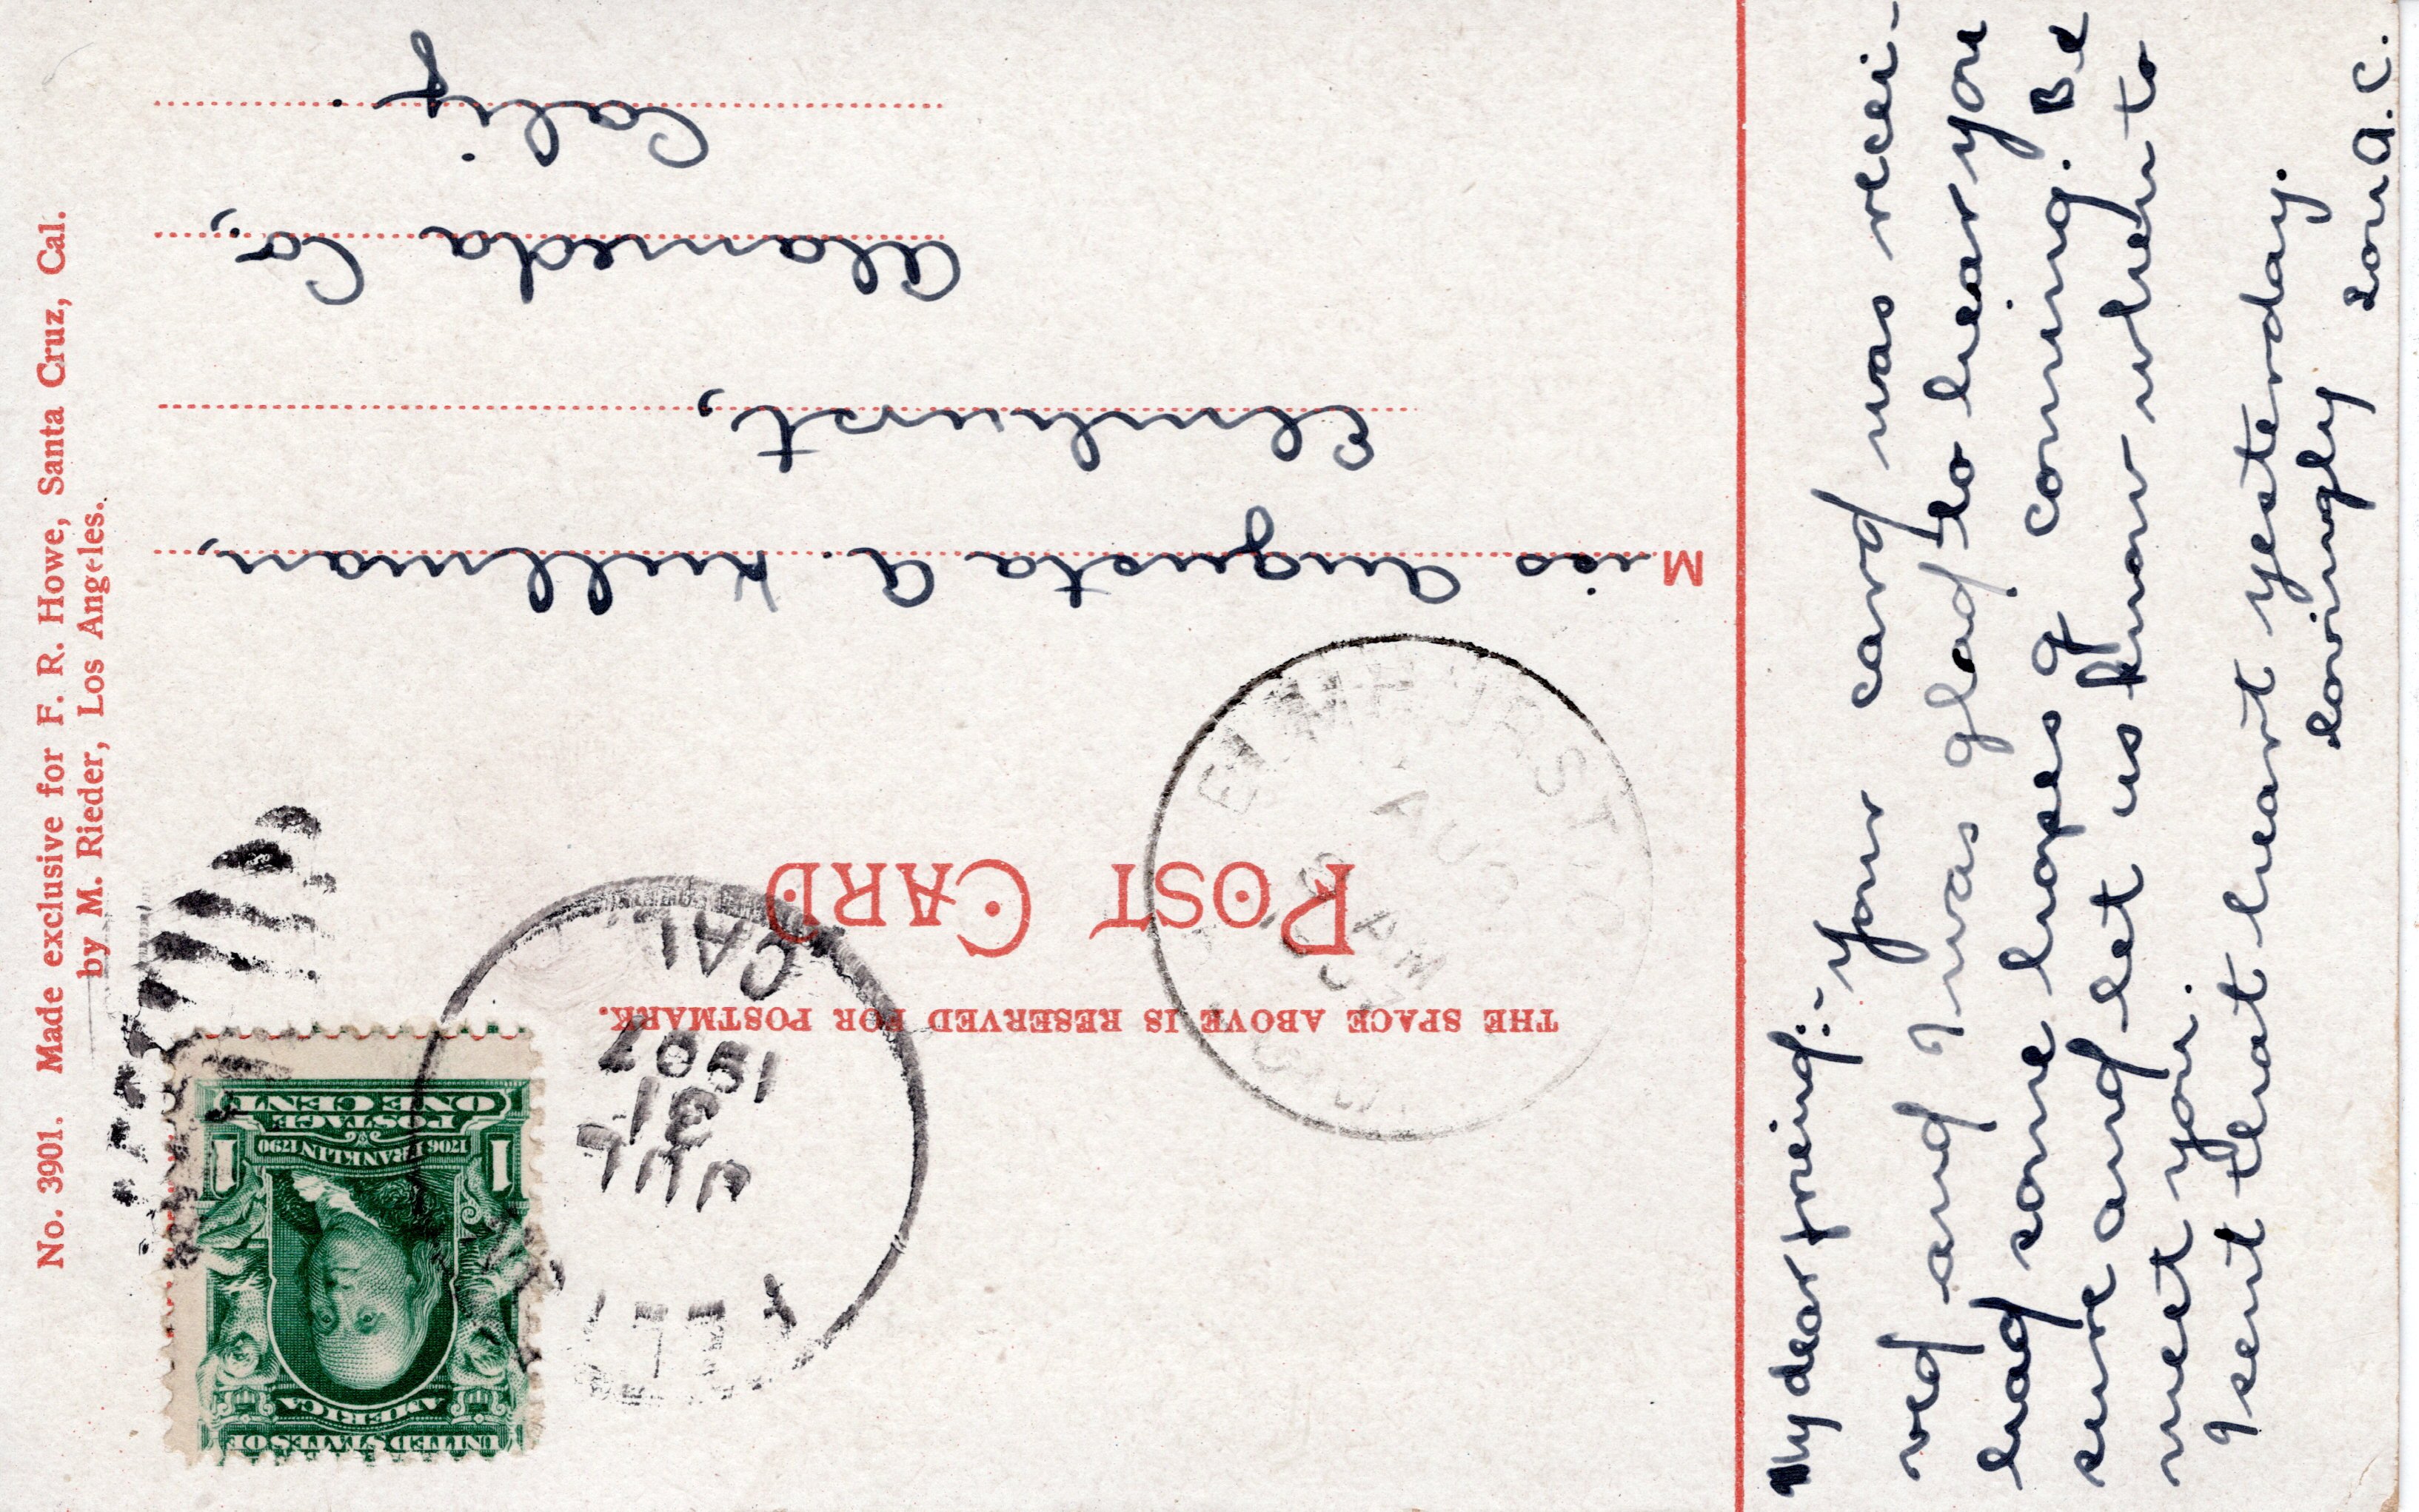 No. 3901. Made exclusive for F. R. Howe, Santa Cruz, Cal.
by M. Rieder, Los Angeles.
UNITED STATES OF
AMERICA
1706 FRANKLIN 1790
POSTAGE
1 ONE CENT 1
JUL
31
1907
CAL
THE SPACE ABOVE IS RESERVED FOR POSTMARK.
POST CARD
ELMHURST
AUG
AM
Miss Augusta A. Kullman,
Elmhurst,
Alameda Co.,
Calif.
My dear freind:- your card was recei-
ved and I was glad to hear you
had some hopes of coming. Be
sure and let us know when to
meet you.
I sent that heart yesterday.
Lovingly
Lou A. C.